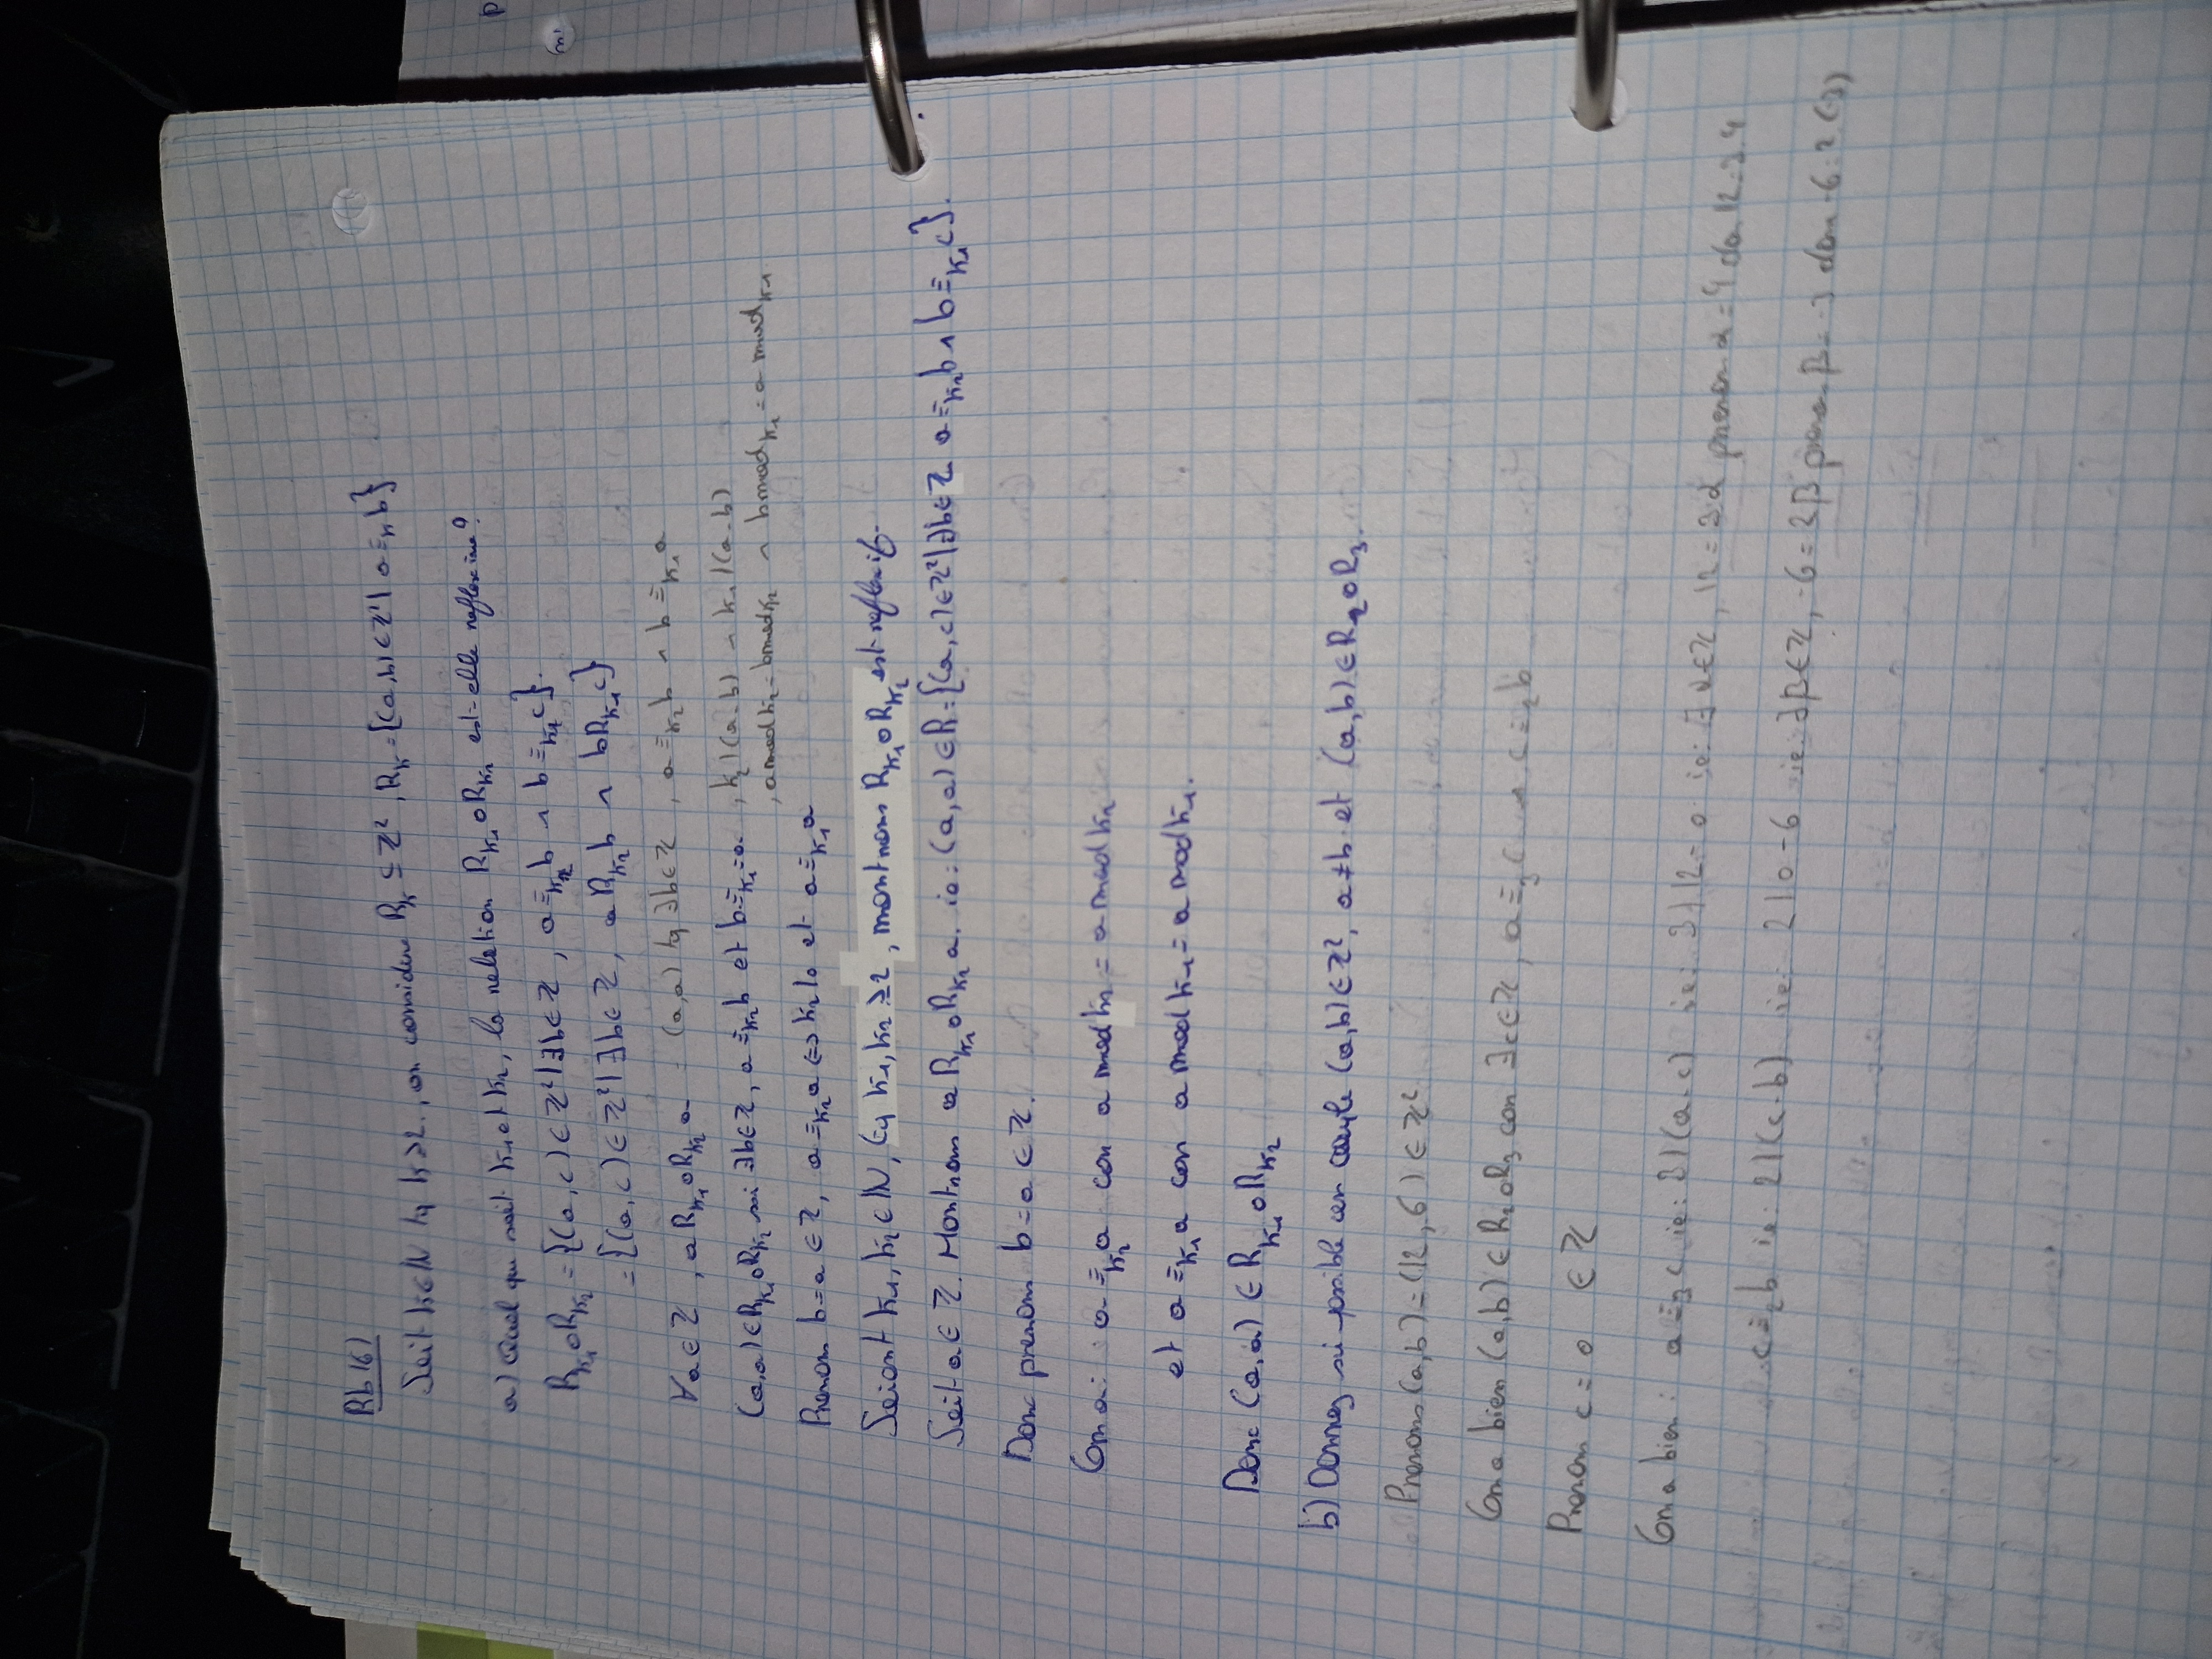 Rb 161
Soit k∈ℕ tq k≥2, on considère R_k ⊆ ℤ², R_k = {(a,b)∈ℤ² | a ≡_k b}
a) Quel que soit k₁ et k₂, la relation R_k₁∘R_k₂ est-elle reflexive?
R_k₁∘R_k₂ = {(a,c)∈ℤ² | ∃b∈ℤ, a ≡_k₂ b ∧ b ≡_k₁ c}.
= {(a,c)∈ℤ² | ∃b∈ℤ, a R_k₂ b ∧ b R_k₁ c}
∀a∈ℤ, a R_k₁∘R_k₂ a = (a,a) tq ∃b∈ℤ, a ≡_k₂ b ∧ b ≡_k₁ a
(a,a)∈R_k₁∘R_k₂ si ∃b∈ℤ, a ≡_k₂ b et b ≡_k₁ = a. , k₂|(a-b) ∧ k₁|(a-b)
, a mod k₂ = b mod k₂ ∧ b mod k₁ = a mod k₁
Prenons b=a ∈ℤ, a ≡_k₂ a ⇔ k₂|0 et a ≡_k₁ a
Soient k₁, k₂∈ℕ, tq k₁, k₂ ≥2, montrons R_k₁∘R_k₂ est reflexif.
Soit a∈ℤ. Montrons a R_k₁∘R_k₂ a. ie: (a,a)∈R={(a,c)∈ℤ² | ∃b∈ℤ a ≡_k₂ b ∧ b ≡_k₁ c}.
Donc prenons b=a∈ℤ.
On a: a ≡_k₂ a car a mod k₂ = a mod k₂
et a ≡_k₁ a car a mod k₁ = a mod k₁.
Donc (a,a) ∈ R_k₁∘R_k₂
b) Donnez si possible un couple (a,b)∈ℤ², a≠b et (a,b)∈R₂∘R₃.
Prenons (a,b)=(12,6)∈ℤ²
On a bien (a,b)∈R₂∘R₃ car ∃c∈ℤ, a ≡₃ c ∧ c ≡₂ b
Prenons c=0 ∈ℤ
On a bien: a ≡₃ c ie: 3|(a-c) ie: 3|12-0 ie: ∃α∈ℤ, 12=3α prenons α=4 donc 12=3.4
c ≡₂ b ie: 2|(c-b) ie: 2|0-6 ie: ∃β∈ℤ, -6=2β prenons β=-3 donc -6=2(-3)